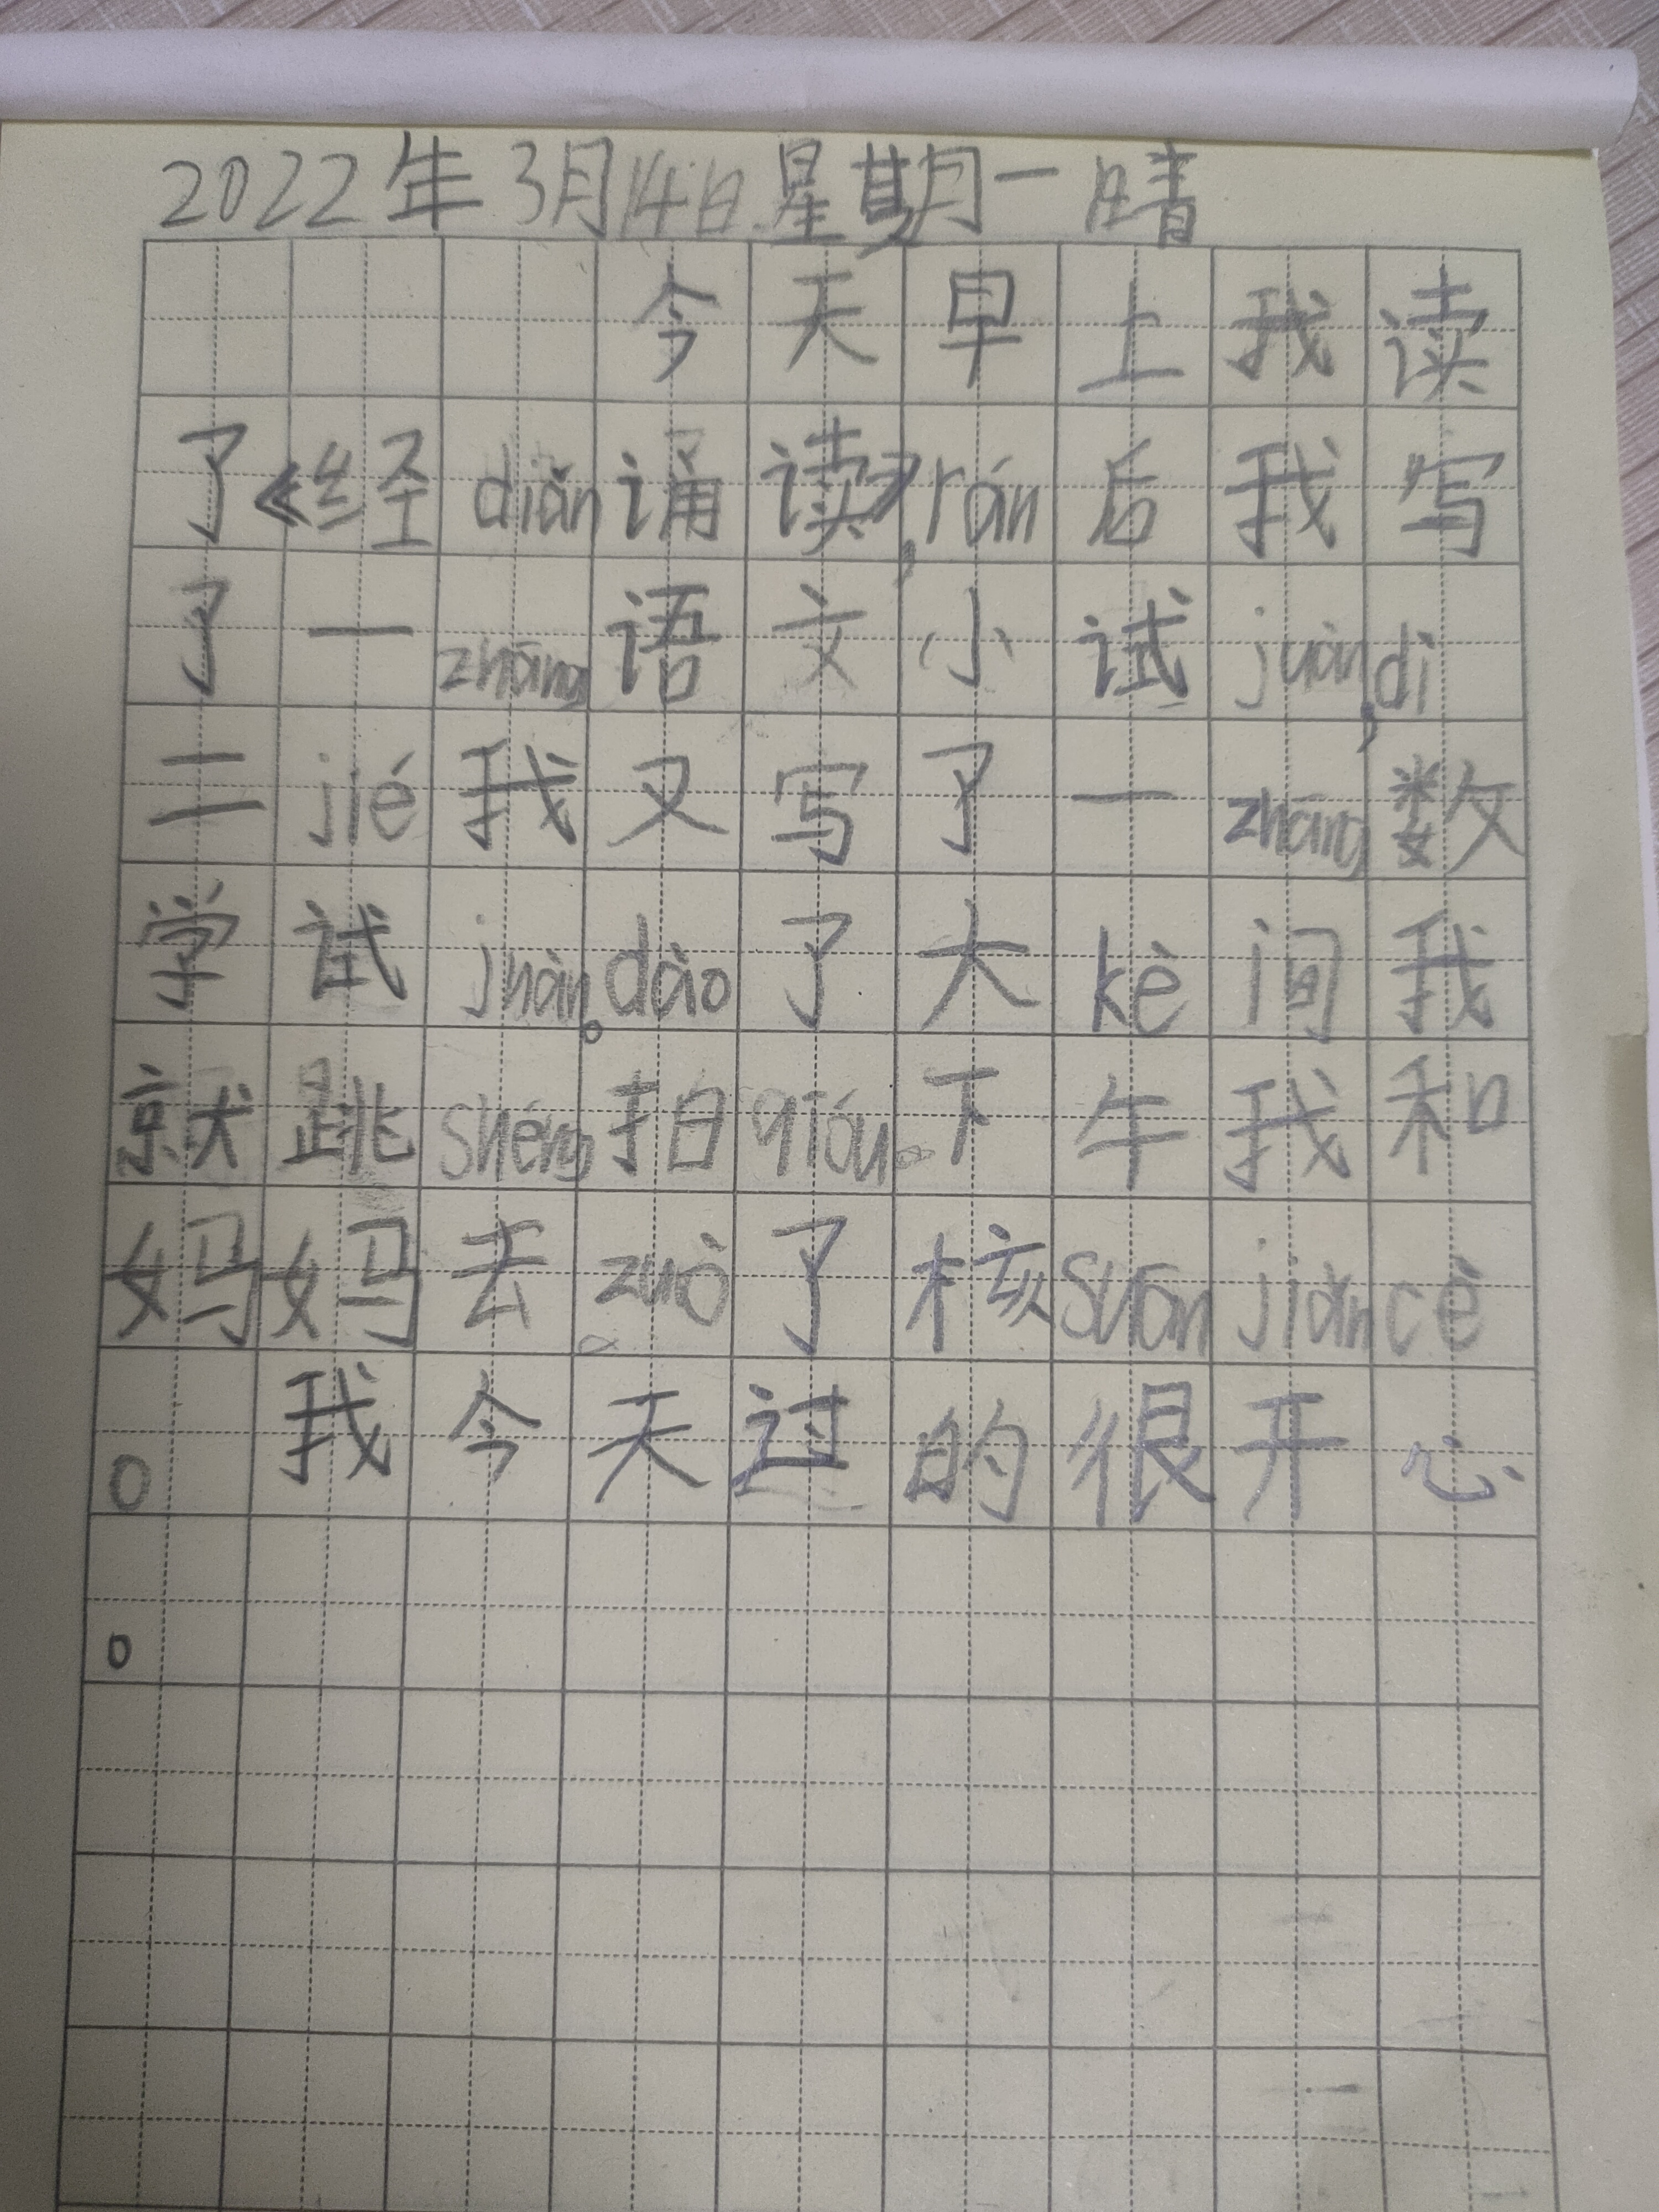 2022年3月14日星期一 晴
今天早上我读
了《经diǎn诵读》,rán后我写
了一zhāng语文小试juàn,dì
二jié我又写了一zhāng数
学试juàn。dào了大kè间我
就跳shéng拍qiú。下午我和
妈妈去zuò了核suān jiǎn cè
。我今天过的很开心
。